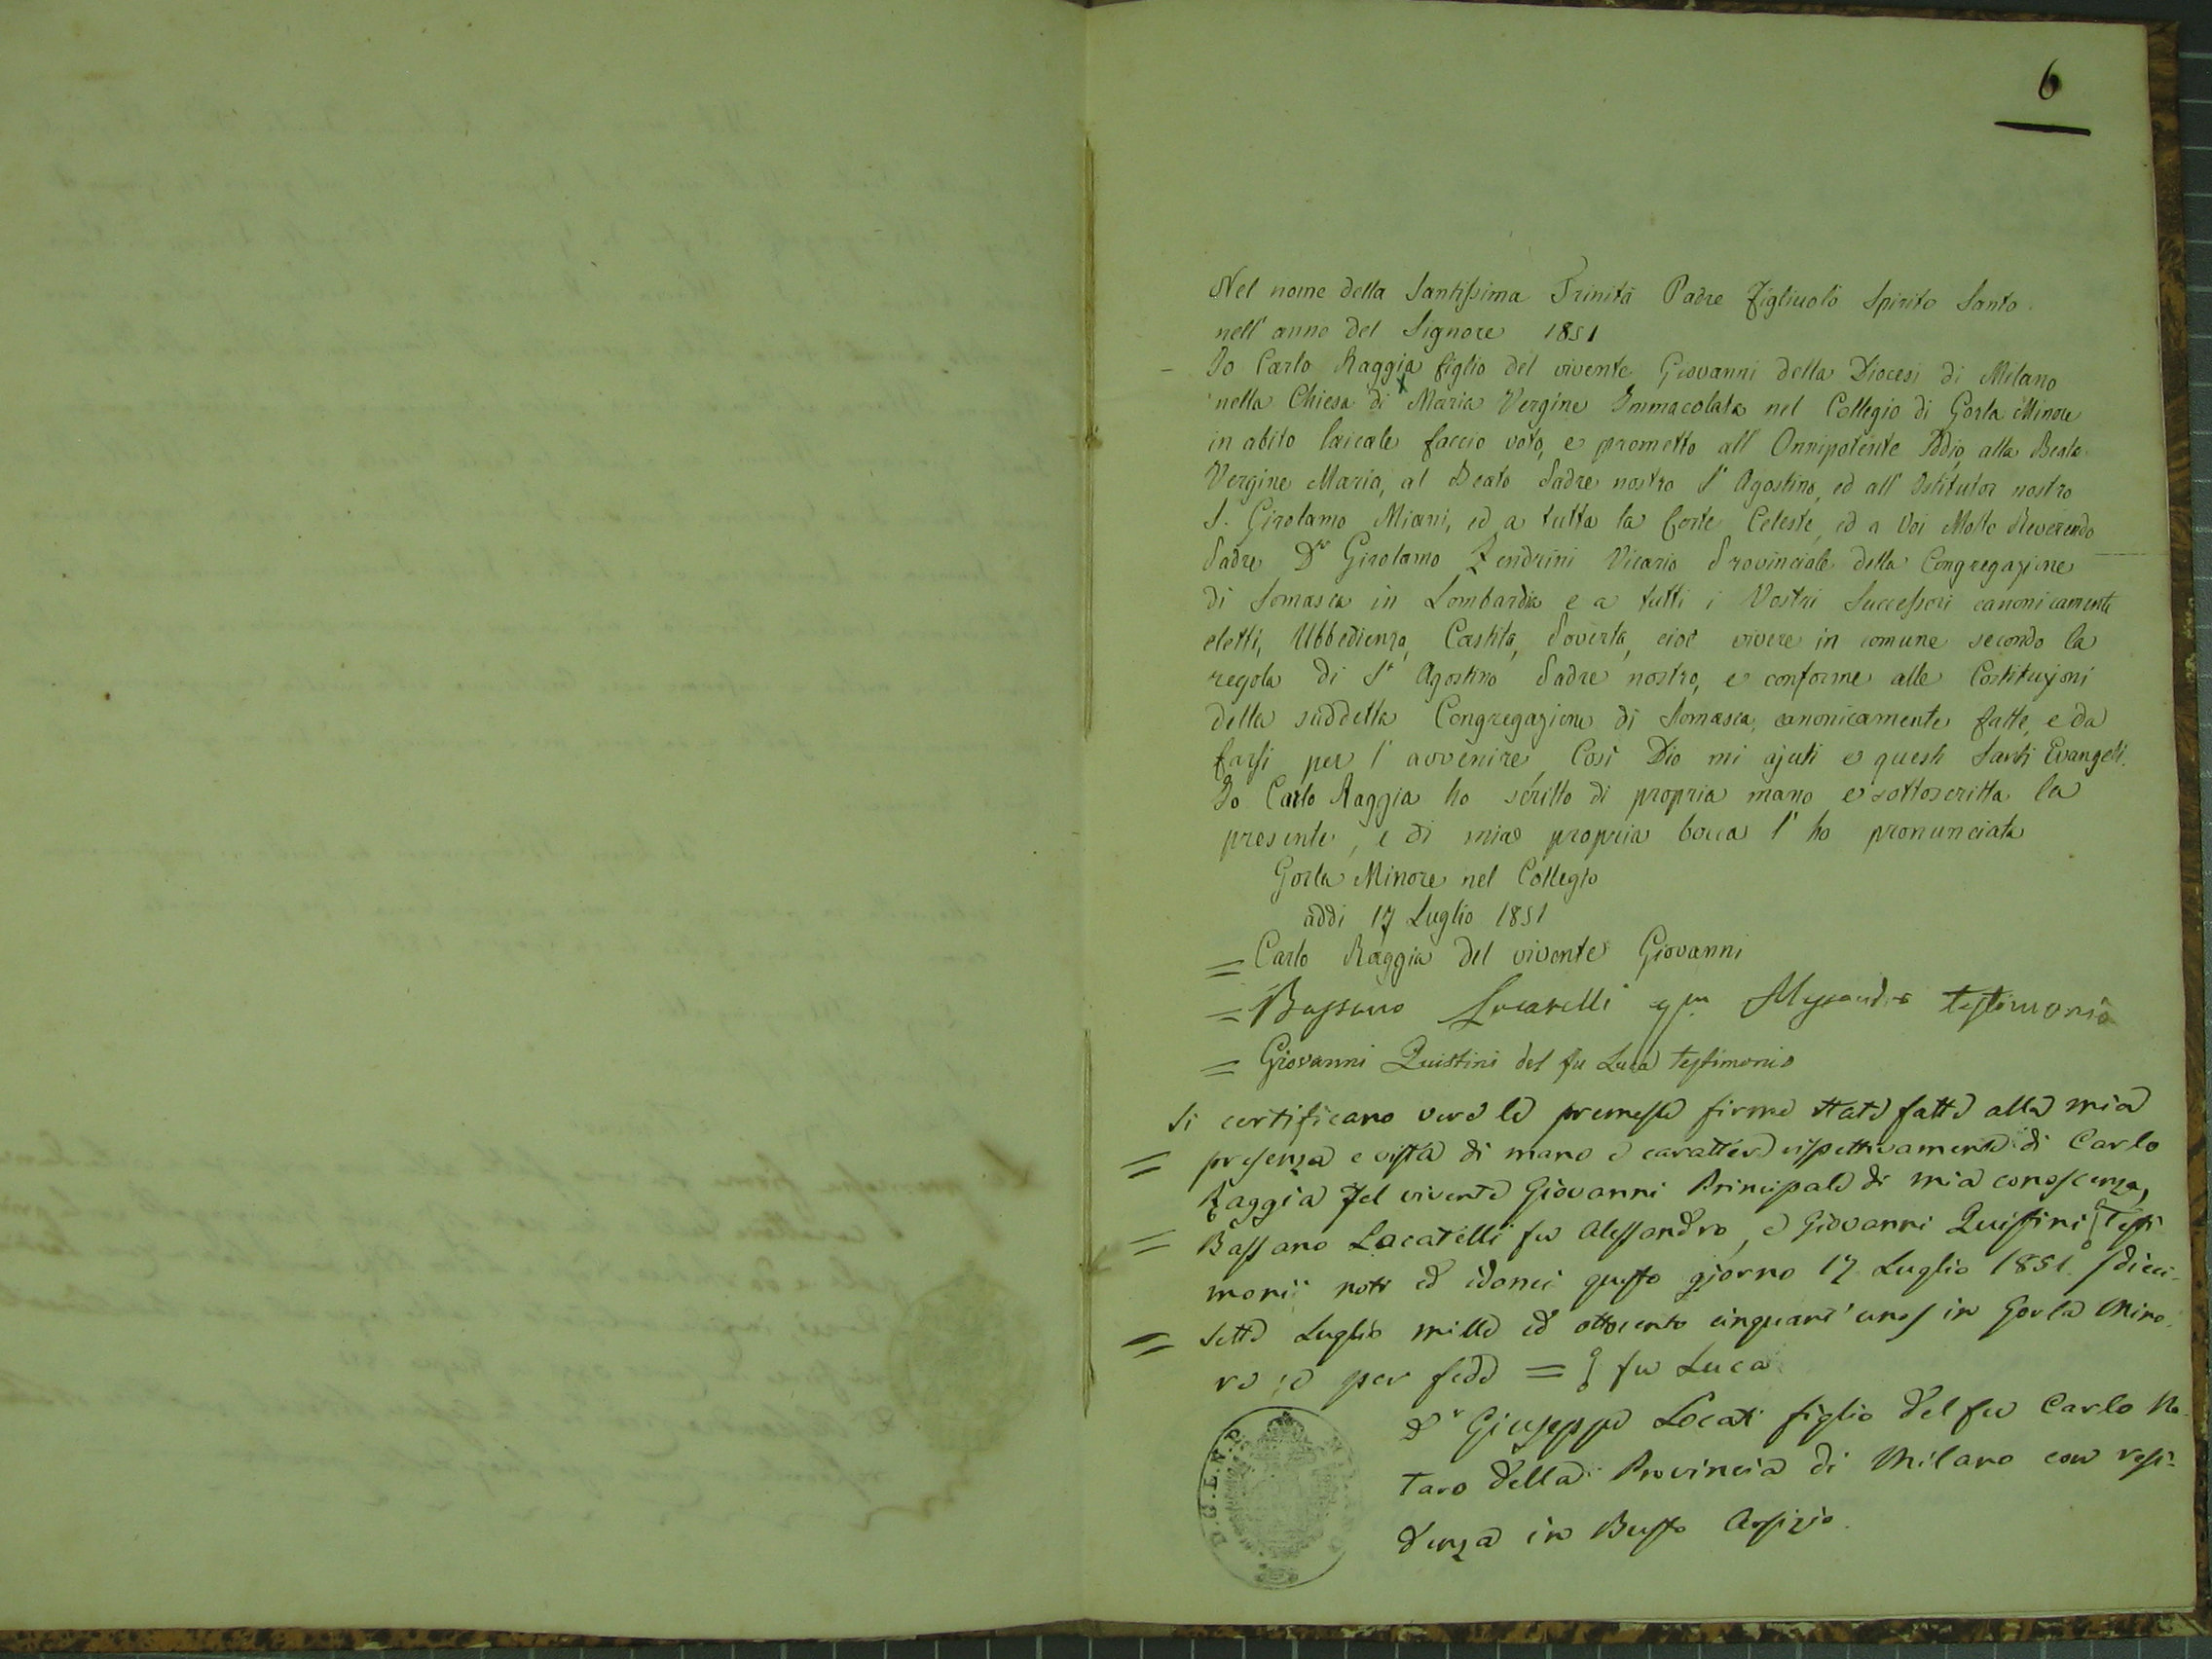 6
Nel nome della Santissima Trinità Padre Figliuolo Spirito Santo
nell' anno del Signore 1851
Io Carlo Raggia figlio del vivente Giovanni della Diocesi di Milano
nella Chiesa di Maria Vergine Immacolata nel Collegio di Gorla Minore
in abito laicale faccio voto, e prometto all' Onnipotente Iddio, alla Beata
Vergine Maria, al Beato Padre nostro S. Agostino, ed all' Istitutor nostro
S. Girolamo Miani, ed a tutta la Corte Celeste, ed a Voi Molto Reverendo
Padre Dn Girolamo Zendrini Vicario Provinciale della Congregazione
di Somasca in Lombardia e a tutti i Vostri Successori canonicamente
eletti, Ubbedienza, Castità, Povertà, cioè vivere in comune secondo la
regola di St Agostino Padre nostro, e conforme alle Costituzioni
della suddetta Congregazione di Somasca, canonicamente fatte, e da
farsi per l' avvenire, Così Dio mi ajuti e questi Santi Evangeli.
Io Carlo Raggia ho scritto di propria mano e sottoscritta la
presente, e di mia propria bocca l' ho pronunciata
Gorla Minore nel Collegio
addi 17 Luglio 1851
= Carlo Raggia del vivente Giovanni
= Bassano Locatelli qm Alessandro testimonio
= Giovanni Quistini del fu Luca testimonio
Si certificano vere le premesse firme state fatte alla mia
= presenza e vista di mano e carattere rispettivamente di Carlo
Raggia del vivente Giovanni Principale di mia conoscenza,
= Bassano Locatelli fu Alessandro, e Giovanni Quistini Testi
monii noti ed idonei questo giorno 17 Luglio 1851 / dieci-
= sette Luglio mille ed ottocento cinquant' uno / in Gorla Mino-
re ed per fede = fu Luca
Dr Giuseppe Locati figlio del fu Carlo No-
taro della Provincia di Milano con resi-
denza in Busto Arsizio.
D.G.L.N.P.